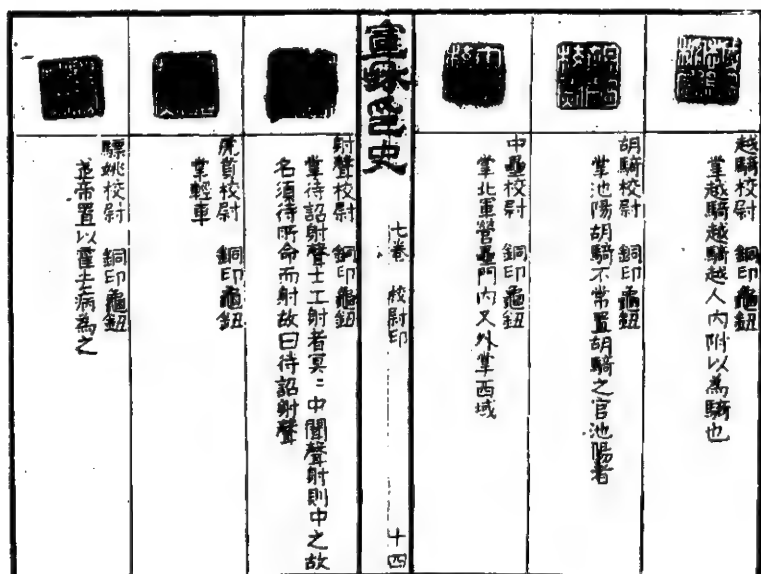 越騎校尉　銅印龜鈕
掌越騎越騎越人內附以為騎也
胡騎校尉　銅印龜鈕
掌池陽胡騎不常置胡騎之官池陽者
中壘校尉　銅印龜鈕
掌北軍營壘門內又外掌西域
宣和印史
七卷　校尉印
十四
射聲校尉　銅印龜鈕
掌待詔射聲士工射者冥〻中聞聲射則中之故
名須待所命而射故曰待詔射聲
虎賁校尉　銅印龜鈕
掌輕車
驃姚校尉　銅印龜鈕
武帝置以霍去病為之